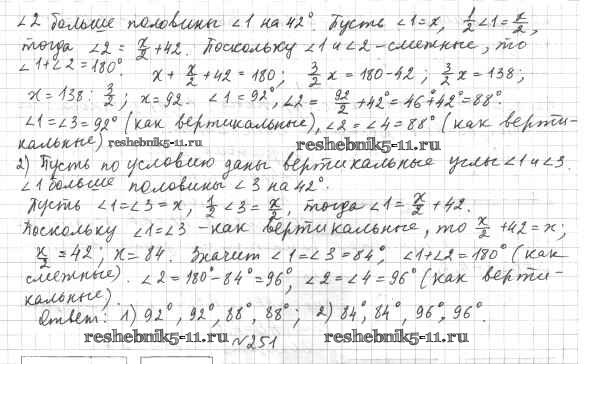 ∠2 больше половины ∠1 на 42°. Пусть ∠1=x, 1/2∠1=x/2,
тогда ∠2 = x/2+42. Поскольку ∠1 и ∠2 - смежные, то
∠1+∠2=180°. x + x/2 + 42 = 180; 3/2 x = 180-42; 3/2 x = 138;
x = 138 : 3/2; x = 92. ∠1 = 92°, ∠2 = 92/2 + 42° = 46°+42°=88°.
∠1=∠3=92° (как вертикальные), ∠2=∠4=88° (как верти-
кальные) reshebnik5-11.ru reshebnik5-11.ru
2) Пусть по условию даны вертикальные углы ∠1 и ∠3.
∠1 больше половины ∠3 на 42°.
Пусть ∠1=∠3=x, 1/2∠3=x/2, тогда ∠1=x/2+42.
Поскольку ∠1=∠3 - как вертикальные, то x/2+42=x;
x/2=42; x=84. Значит ∠1=∠3=84°, ∠1+∠2=180° (как
смежные). ∠2=180°-84°=96°, ∠2=∠4=96° (как верти-
кальные).
Ответ: 1) 92°, 92°, 88°, 88°; 2) 84°, 84°, 96°, 96°.
reshebnik5-11.ru reshebnik5-11.ru
№251